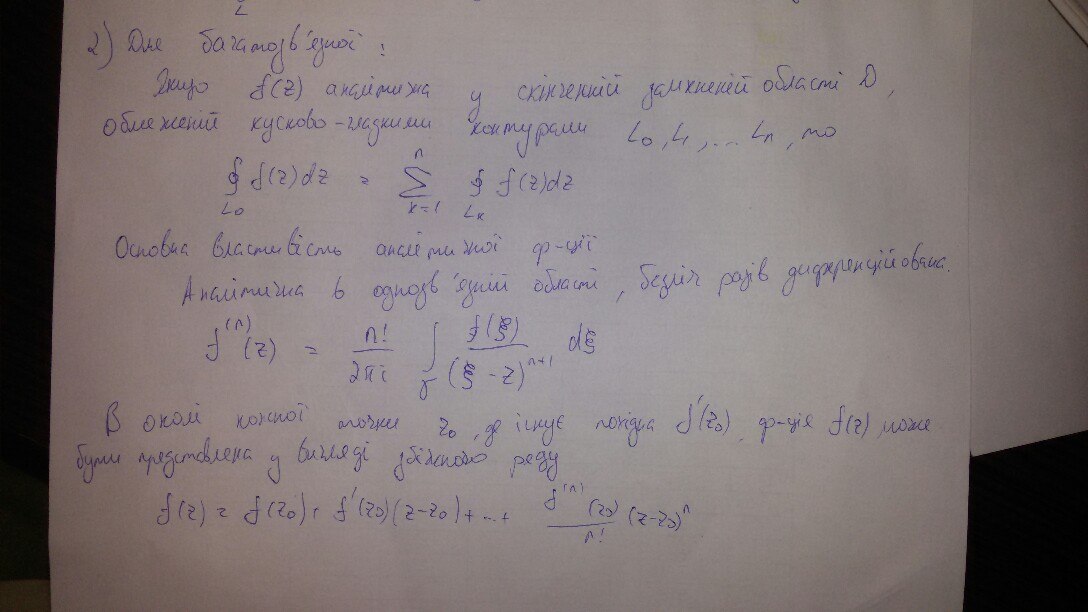 L
2) Для багатозв'язної:
Якщо f(z) аналітична у скінченній замкненій області D,
обмеженій кусково-гладкими контурами L₀, L₁, ... Lₙ, то
∮_{L₀} f(z)dz = ∑_{k=1}^{n} ∮_{Lₖ} f(z)dz
Основна властивість аналітичної ф-ції
Аналітична в однозв'язній області, безліч разів диференційована.
f^{(n)}(z) = \frac{n!}{2πi} ∫_γ \frac{f(ξ)}{(ξ - z)^{n+1}} dξ
В околі кожної точки z₀, де існує похідна f'(z₀), ф-ція f(z) може
бути представлена у вигляді збіжного ряду
f(z) = f(z₀) + f'(z₀)(z-z₀) + ... + \frac{f^{(n)}(z₀)}{n!} (z-z₀)^n